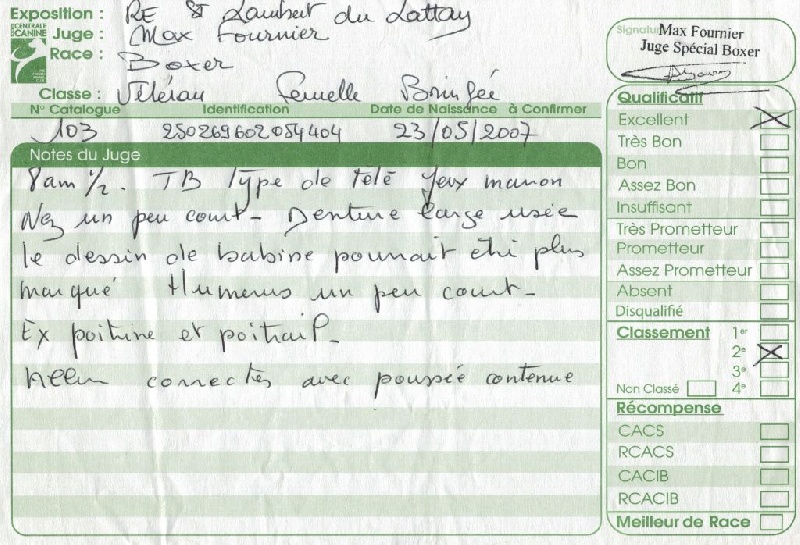 Exposition : RE St Lambert du Lattay
CENTRALE CANINE
Juge : Max Fournier
Race : Boxer
Classe : Vétéran Femelle Bringée
N° Catalogue Identification Date de Naissance à Confirmer
103 250269602054404 23/05/2007
Notes du Juge
8 am 1/2. TB Type de tete Yeux marron
Nez un peu court - Denture large usée
le dessin de babine pourrait être plus
marqué Humerus un peu court -
Ex poitrine et poitrail -
Allure correctes avec poussée contenue
Signature
Max Fournier
Juge Spécial Boxer
Qualificatif
Excellent
Très Bon
Bon
Assez Bon
Insuffisant
Très Prometteur
Prometteur
Assez Prometteur
Absent
Disqualifié
Classement 1er
2e
3e
Non Classé 4e
Récompense
CACS
RCACS
CACIB
RCACIB
Meilleur de Race